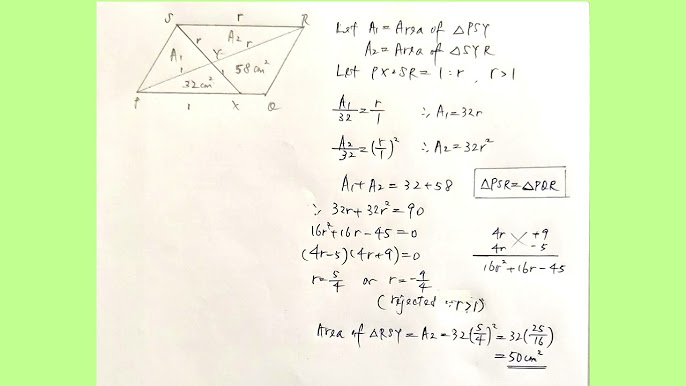 S r R
r A₂ r
A₁ Y
1 1 58cm²
32cm²
P 1 X Q
Let A₁ = Area of △PSY
A₂ = Area of △SYR
Let PX:SR = 1:r, r>1
A₁/32 = r/1 ∴ A₁=32r
A₂/32 = (r/1)² ∴ A₂=32r²
A₁+A₂ = 32+58 △PSR=△PQR
∴ 32r+32r² = 90
16r²+16r-45=0
4r +9
4r -5
16r²+16r-45
(4r-5)(4r+9)=0
r=5/4 or r=-9/4
(rejected ∵ r>1)
Area of △RSY = A₂ = 32(5/4)² = 32(25/16)
= 50cm²